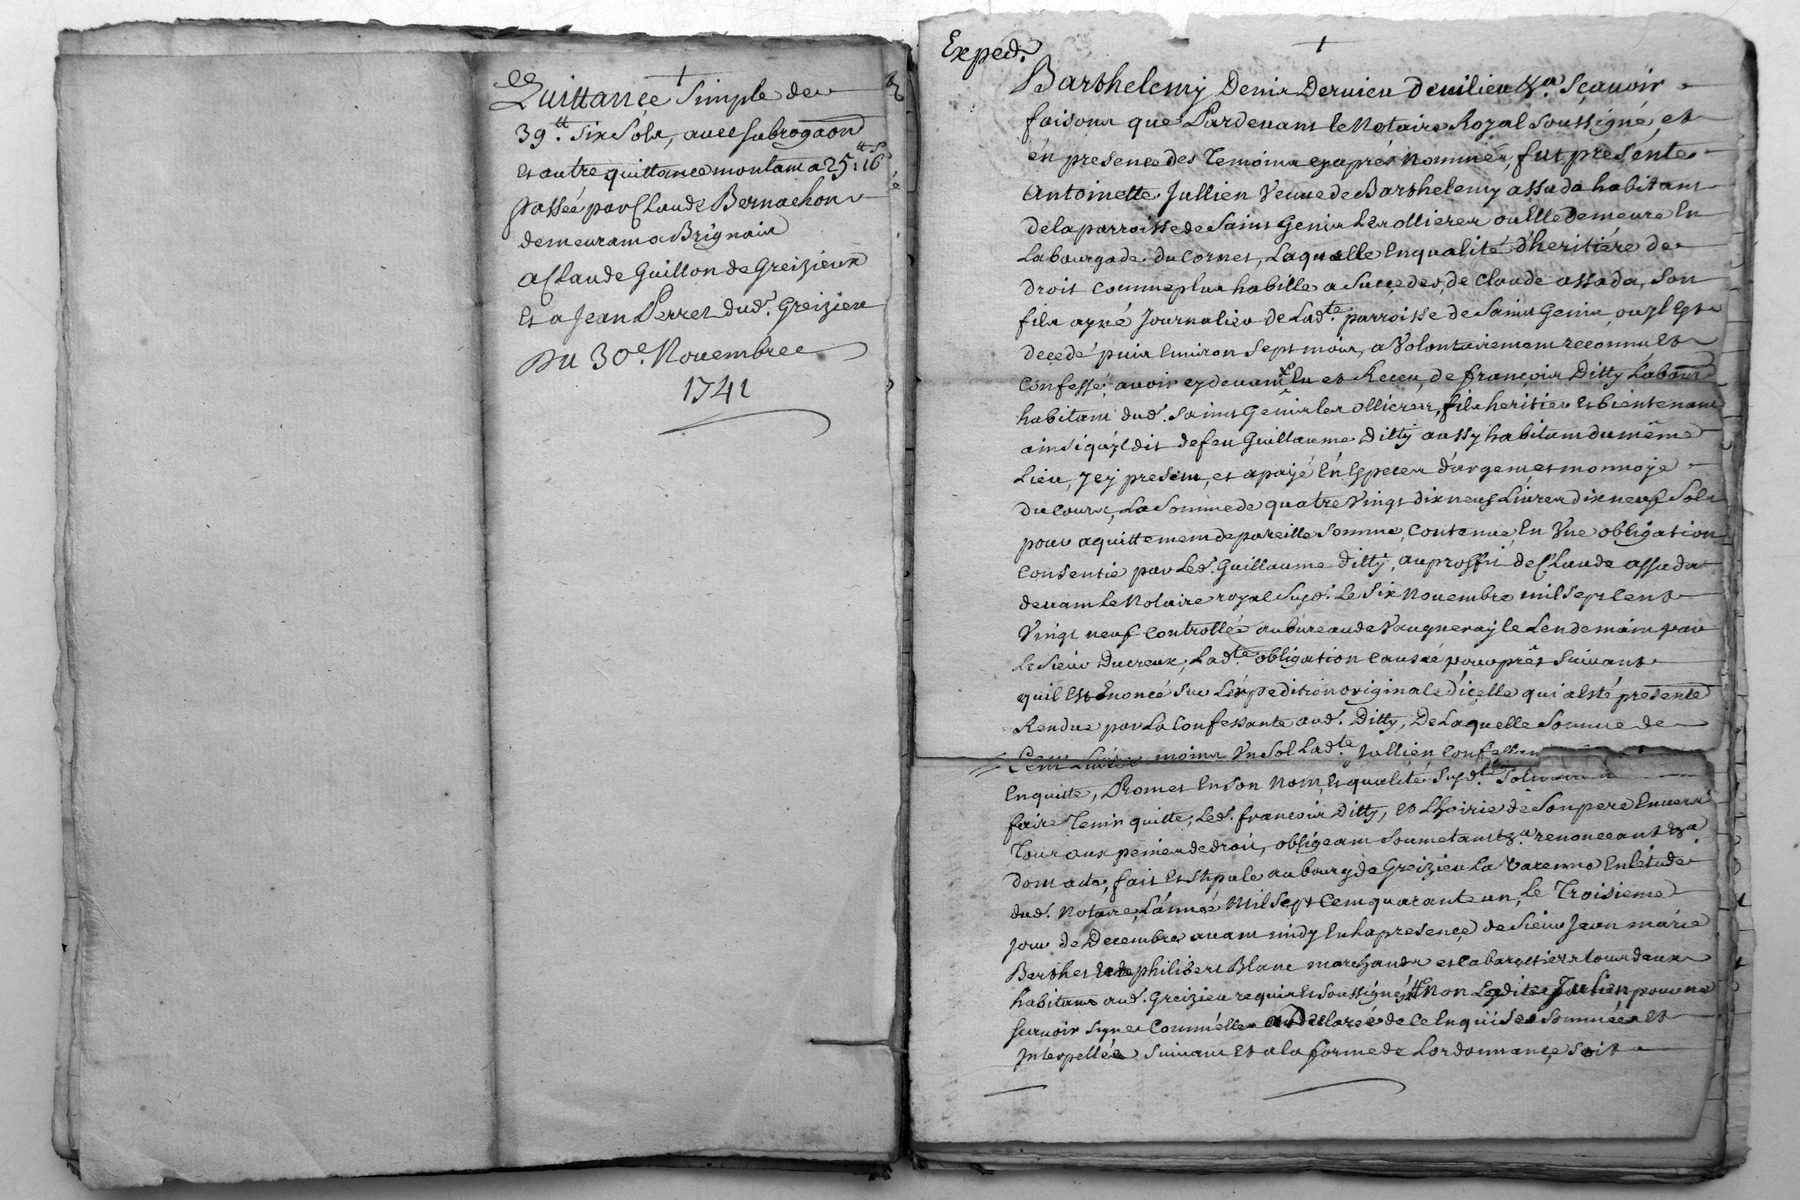 Quittance simple de
39.tt six sols, avec subrogaon
et autre quittance montant a 25.tt 16 s
passée par Claude Bernachon
demeurant a Brignais
a Claude Guillon de Greizieux
et a Jean Perret dud. Greizieu
Du 30e. Novembre
1741
Exped.
Barthelemy Denis Dervieu Devilieu &a. sçavoir
faisons que Pardevant le Notaire Royal soussigné, et
en presence des temoins cy aprés nommés, fut presente
antoinette Jullien Veuve de Barthelemy assada habitant
de la parroisse de Saint Genis Les ollieres ou Elle demeure En
La bourgade du Cornet, Laquelle En qualité d'heritiére de
droit comme plus habille a succeder, de Claude assada, son
fils ayné Journalier de Lad.te parroisse de Saint Genis, ou yl Est
decedé puis Environ sept mois, a Volontairement reconnu et
Confessé, avoir cy devant Eu et Receu, de françois Ditty Labour
habitant dud. Saint Genis les ollieres, fils heritier et bientenant
ainsi qu'yl dit de feu Guillaume Ditty aussy habitant du même
Lieu, Jcy present, et a payé En Especes d'argent et monnoye
du Cours, La somme de quatre Vingt dix neuf Livres dix neuf sols
pour aquittement de pareille somme, Contenue En Vne obligation
Consentie par Led. Guillaume Ditty, au proffit de Claude assada
devant Le Notaire royal susd. Le six Novembre mil sept cent
Vingt neuf controllée au bureau de Vaugneray le Lendemain par
Le Sieur Ducreux, Lad.te obligation causée pour prêt suivant
quil Est Enoncé sur L'expedition originale d'icelle qui a Esté presente
Rendue par La Confessante aud. Ditty, De Laquelle somme de
Cent Livres moins Vn sol Lad.te Jullien
En quitte, Promet En son Nom, Et qualité susd.te
faire Tenir quitte, Led. françois Ditty, et L'hoirie de son pere Envers
Tous aux peines de droit, obligeant soumetant &a. renonceant &a
dont acte, fait Et stipulé au bourg de Greizieu La Varenne En létude
dud. Notaire, L'année Mil sept Cent quarante un, Le Troisieme
jour de Decembre avant midy En La presence de Sieur Jean marie
Berthet et de philibert Blanc marchands et cabaretiers tous deux
habitans aud. Greizieu requis Et soussignés, Non Ladite Julien pour ne
scavoir signer Comm'elle a Declaré de ce Enquise sommée Et
Interpellée suivant Et a la forme de L'ordonnance, soit